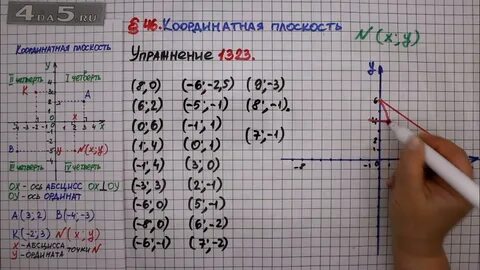 4DA5.RU
§ 46. Координатная плоскость
N(x; y)
Упражнение 1323.
Координатная плоскость
II четверть
I четверть
III четверть
IV четверть
y
x
K
A
B
N(x; y)
OX - ось абсцисс OX⊥OY
OY - ось ординат
A(3; 2) B(-4; -3)
K(-2; 3) N(x; y)
x - абсцисса точки N
y - ордината
(8; 0) (-6; -2,5) (9; -3)
(6; 2) (-5; -1) (8; -1).
(0; 6) (-1; 1) (7; -1)
(1; 4) (0; 1)
(-1; 4) (3; 0)
(-3; 3) (2; -1)
(-6; 0) (5; -1)
(-8; 0) (6; -2)
(-6; -1) (7; -2)
y
6
4
-8
-1
0
-1